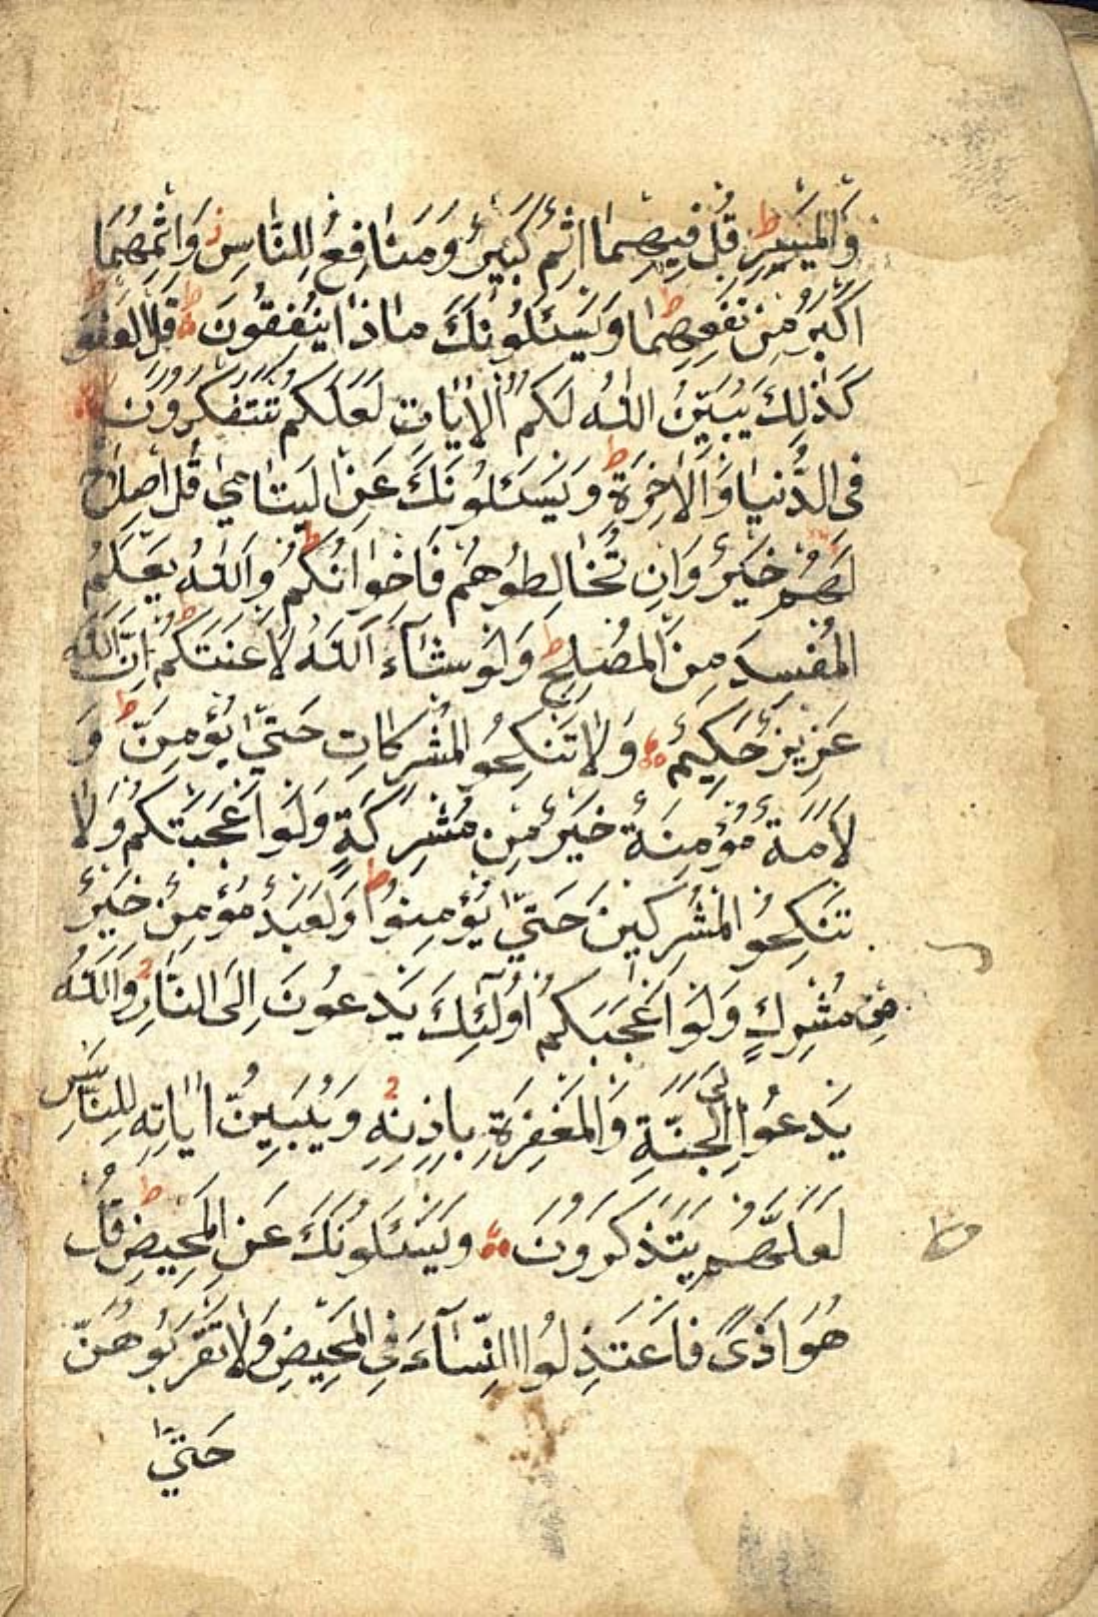 وَالْمَيْسِرِ ط قُلْ فِيهِمَا اِثْمٌ كَبِيرٌ وَمَنَافِعُ لِلنَّاسِ ز وَاِثْمُهُمَا
اَكْبَرُ مِنْ نَفْعِهِمَا ط وَيَسْئَلُونَكَ مَاذَا يُنْفِقُونَ ط قُلِ الْعَفْوَ ط
كَذٰلِكَ يُبَيِّنُ اللّٰهُ لَكُمُ الْاٰيَاتِ لَعَلَّكُمْ تَتَفَكَّرُونَ
فِى الدُّنْيَا وَالْاٰخِرَةِ ط وَيَسْئَلُونَكَ عَنِ الْيَتَامٰي قُلْ اِصْلَاحٌ
لَهُمْ خَيْرٌ وَاِنْ تُخَالِطُوهُمْ فَاِخْوَانُكُمْ ط وَاللّٰهُ يَعْلَمُ
الْمُفْسِدَ مِنَ الْمُصْلِحِ ط وَلَوْ شَآءَ اللّٰهُ لَاَعْنَتَكُمْ ط اِنَّ اللّٰهَ
عَزِيزٌ حَكِيمٌ وَلَا تَنْكِحُو الْمُشْرِكَاتِ حَتّٰي يُؤْمِنَّ ط وَ
لَاَمَةٌ مُؤْمِنَةٌ خَيْرٌ مِنْ مُشْرِكَةٍ وَلَوْ اَعْجَبَتْكُمْ وَلَا
تَنْكِحُو الْمُشْرِكِينَ حَتّٰي يُؤْمِنُوا ط وَلَعَبْدٌ مُؤْمِنٌ خَيْرٌ
مِنْ مُشْرِكٍ وَلَوْ اَعْجَبَكُمْ اُولٰٓئِكَ يَدْعُونَ اِلَى النَّارِ وَاللّٰهُ
يَدْعُوا اِلَى الْجَنَّةِ وَالْمَغْفِرَةِ بِاِذْنِهِ وَيُبَيِّنُ اٰيَاتِهِ لِلنَّاسِ
لَعَلَّهُمْ يَتَذَكَّرُونَ وَيَسْئَلُونَكَ عَنِ الْمَحِيضِ ط قُلْ
هُوَ اَذًى فَاعْتَذِلُوا النِّسَآءَ فِي الْمَحِيضِ وَلَا تَقْرَبُوهُنَّ
حَتّٰي